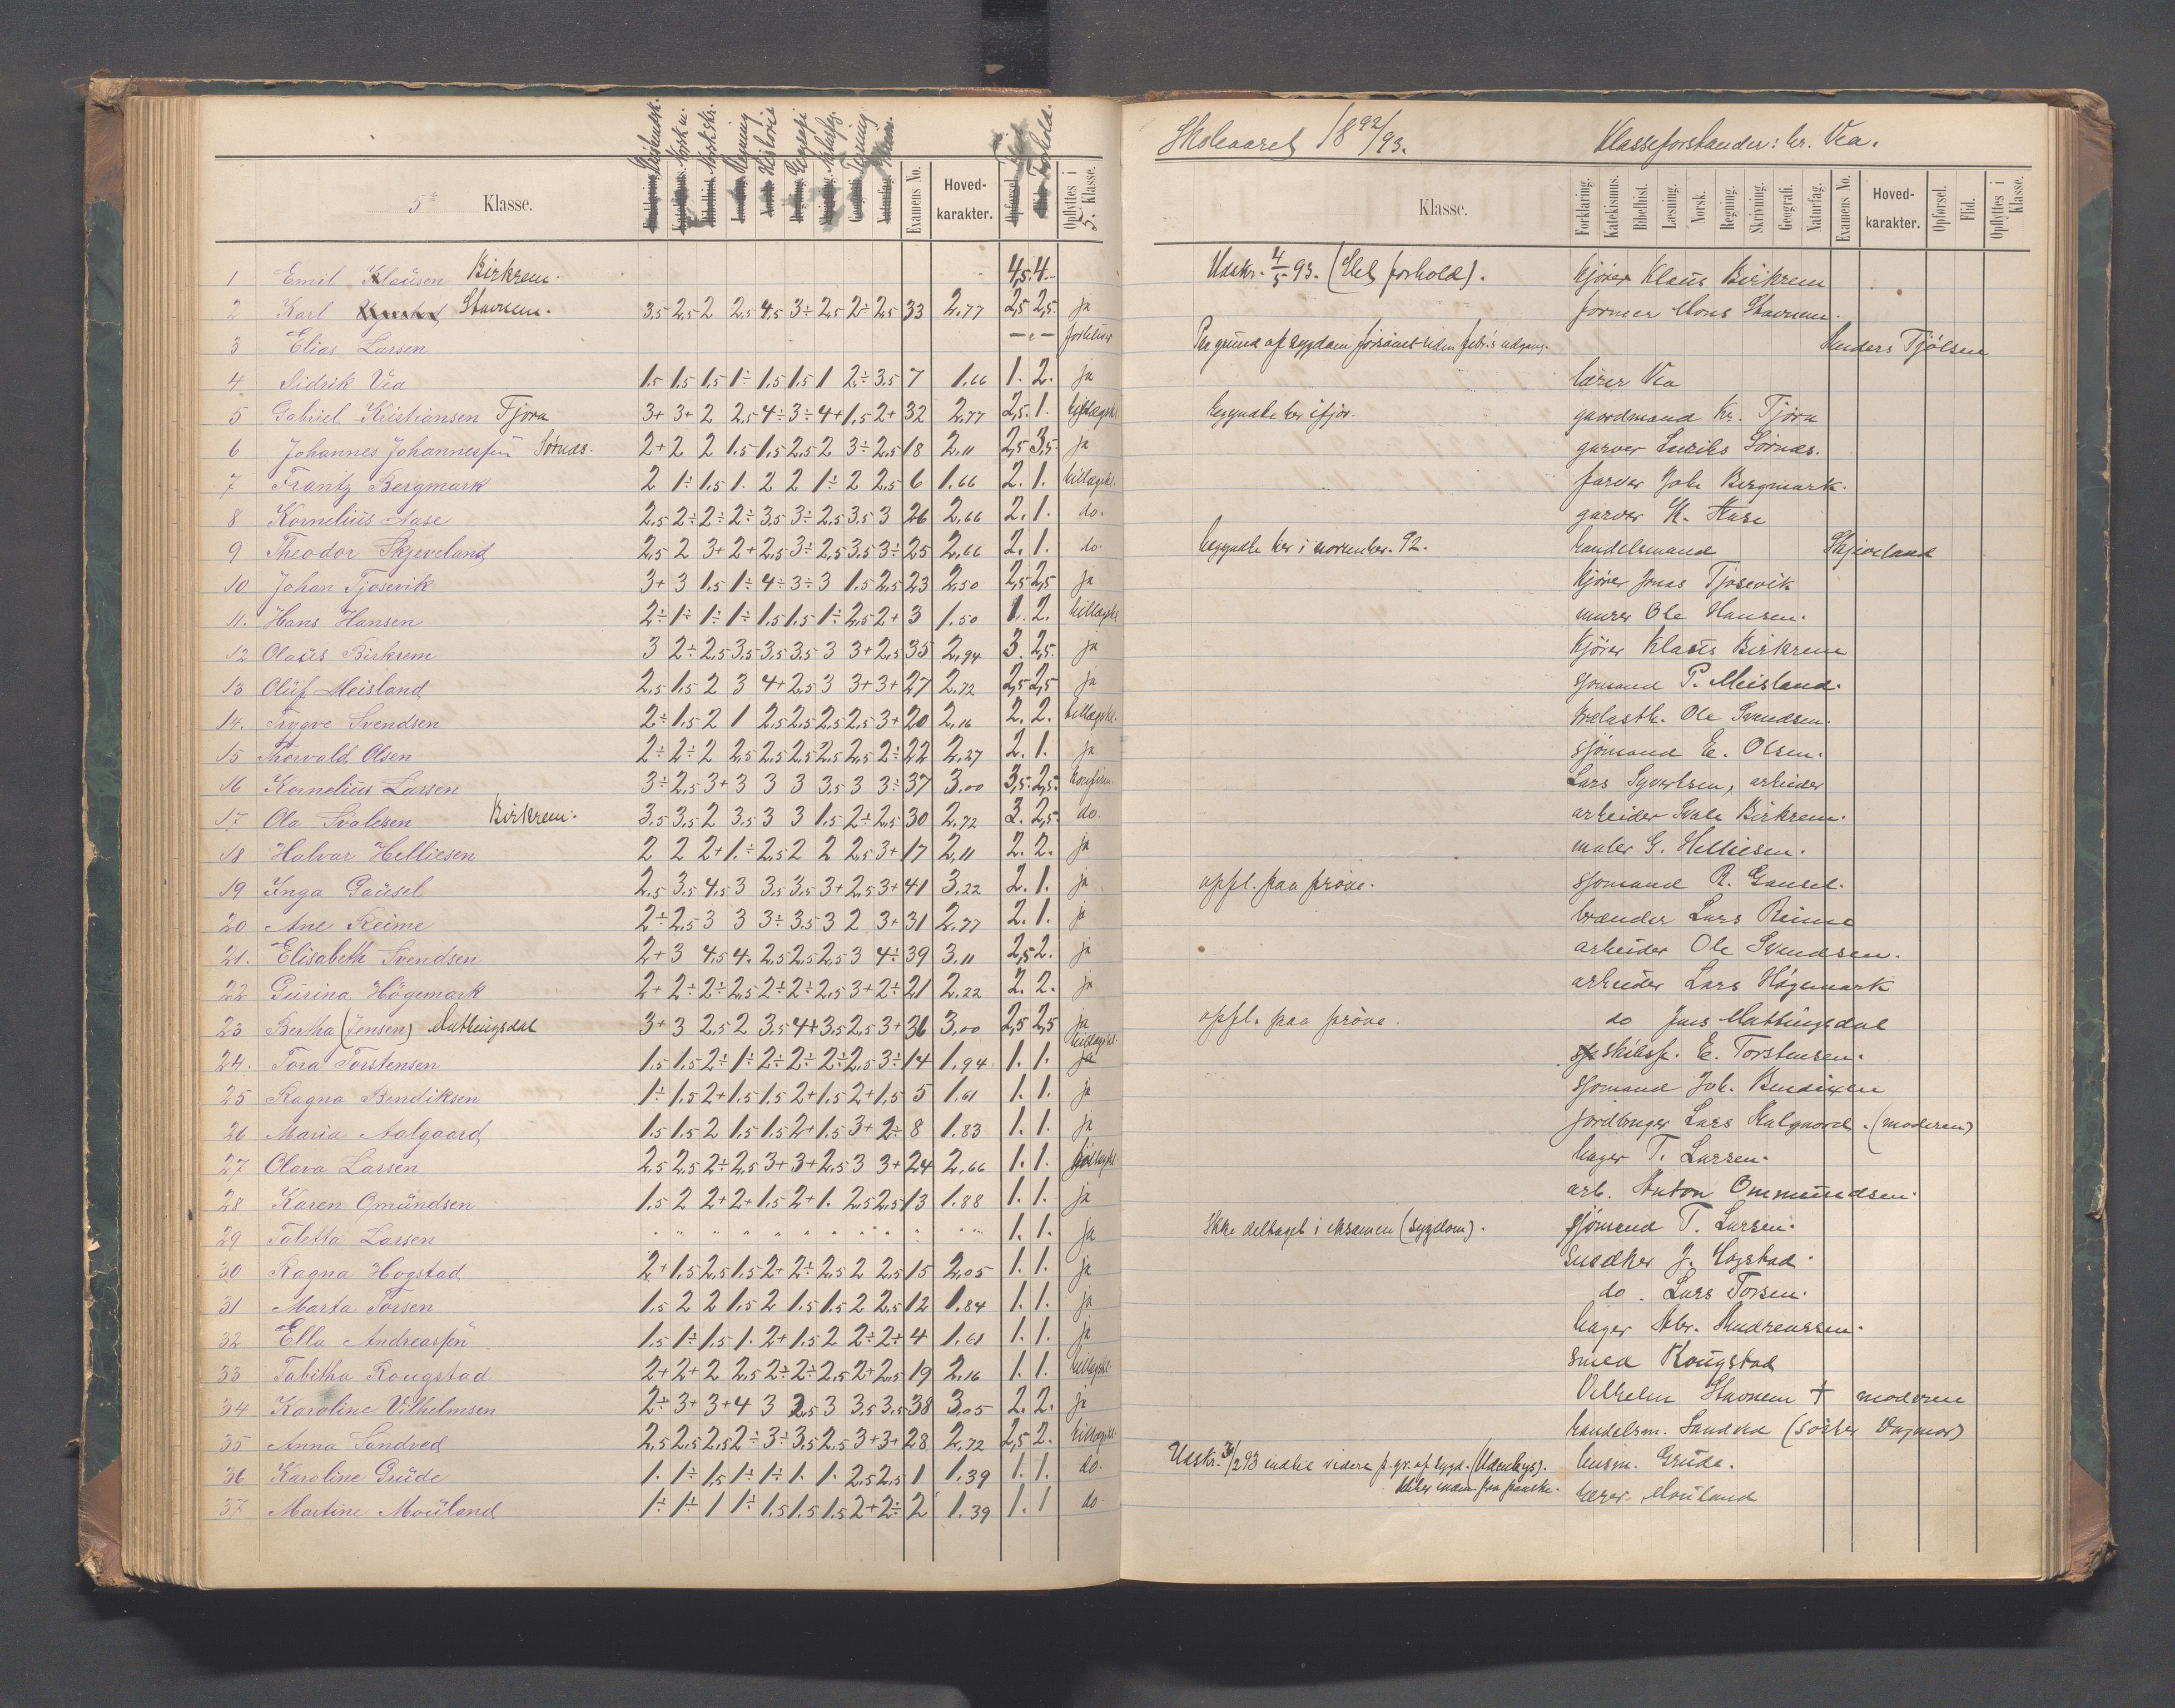 5te Klasse.
Kristendsk. Norsk m. Norsk skr. Regning Historie Geografi Naturfag. Tegning Skriv. Examens No. Hoved-karakter. Flid Forhold. Opflyttes i 5. Klasse.
1 Emil Klausen Birkrem. 4,5 4.-
2 Karl Stavnem. 3.5 2.5 2 2.5 4.5 3÷ 2.5 2÷ 2.5 33 2.77 2,5 2,5. ja
3 Elias Larsen — „ — forbliver
4 Sidrik Vea 1.5 1.5 1.5 1÷ 1.5 1.5 1 2÷ 3.5 7 1.66 1. 2. ja
5 Gabriel Kristiansen Tjorn 3+ 3+ 2 2.5 4÷ 3÷ 4+ 1.5 2+ 32 2.77 2,5. 1. tillægskl.
6 Johannes Johannessen Sørnæs. 2+ 2 2 1.5 1.5 2.5 2 3÷ 2.5 18 2.11 2,5 3,5. ja
7 Frantz Bergmark 2 1÷ 1.5 1. 2 2 1÷ 2 2.5 6 1.66 2. 1. tillægskl.
8 Kornelius Aase 2.5 2÷ 2÷ 2÷ 3.5 3÷ 2.5 3.5 3 26 2.66 2. 1. do.
9 Theodor Skjeveland 2.5 2 3+ 2+ 2.5 3÷ 2.5 3.5 3÷ 25 2.66 2. 1. do.
10 Johan Tjosevik 3+ 3 1.5 1÷ 4÷ 3÷ 3 1.5 2.5 23 2.50 2,5 2,5 ja
11. Hans Hansen 2÷ 1÷ 1÷ 1÷ 1.5 1.5 1÷ 2.5 2+ 3 1.50 1. 2. tillægskl.
12 Olaus Birkrem 3 2÷ 2.5 3.5 3.5 3.5 3 3+ 2.5 35 2.94 3. 2,5. ja
13 Oluf Meisland 2.5 1.5 2 3 4+ 2.5 3 3+ 3+ 27 2.72 2,5 2,5 ja
14. Trygve Svendsen 2÷ 1.5 2 1 2.5 2.5 2.5 2.5 3+ 20 2.16 2. 2. tillægskl.
15 Thorvald Olsen 2÷ 2÷ 2 2.5 2.5 2.5 2.5 2.5 2÷ 22 2.27 2. 1. ja
16 Kornelius Larsen 3÷ 2.5 3+ 3 3 3 3.5 3 3÷ 37 3.00 3,5. 2,5. konfirm.
17 Ola Svalesen Birkrem. 3.5 3.5 2 3.5 3 3 1.5 2÷ 2.5 30 2.72 3. 2,5. do.
18 Halvar Helliesen 2 2 2+ 1.÷ 2.5 2 2 2.5 3+ 17 2.11 2. 2. ja
19 Inga Gausel 2.5 3.5 4.5 3 3.5 3.5 3+ 2.5 3+ 41 3.22 2. 1. ja
20 Ane Reime 2÷ 2.5 3 3 3÷ 3.5 3 2 3+ 31 2.77 2. 1. ja
21. Elisabeth Svendsen 2+ 3 4.5 4. 2.5 2.5 2.5 3 4÷ 39 3.11 2,5 2. ja
22 Gurina Högemark 2+ 2÷ 2÷ 2.5 2÷ 2÷ 2.5 3+ 2÷ 21 2.22 2. 2. ja
23 Bertha (Jensen) Mattingsdal 3+ 3 2.5 2 3.5 4+ 3.5 2.5 3+ 36 3.00 2,5 2,5 ja
24. Tora Torstensen 1.5 1.5 2÷ 1÷ 2÷ 2÷ 2÷ 2.5 3÷ 14 1.94 1. 1. tillægskl. ja
25 Ragna Bendiksen 1÷ 1.5 2+ 1.5 1.5 2+ 1.5 2+ 1.5 5 1.61 1. 1. ja
26 Maria Aalgaard 1.5 1.5 2 1.5 1.5 2+ 1.5 3+ 2÷ 8 1.83 1. 1. ja
27 Olava Larsen 2.5 2.5 2÷ 2.5 3+ 3+ 2.5 3 3+ 24 2.66 1. 1. tillægskl.
28 Karen Omundsen 1.5 2 2+ 2+ 1.5 2+ 1. 2.5 2.5 13 1.88 1. 1. ja
29 Taletta Larsen „ „ „ „ „ „ „ „ „ „ „ 1. 1. ja
30 Ragna Hogstad 2+ 1.5 2.5 1.5 2+ 2÷ 2.5 2 2.5 15 2.05 1. 1. ja
31 Marta Torsen 1.5 2 2 1.5 2 1.5 1.5 2 2.5 12 1.84 1. 1. ja
32 Ella Andreassen 1.5 1÷ 1.5 1. 2+ 1.5 2 2÷ 2+ 4 1.61 1. 1. ja
33 Tabitha Rougstad 2+ 2+ 2 2.5 2÷ 2÷ 2.5 2+ 2.5 19 2.16 1. 1. tillægskl.
34 Karoline Vilhelmsen 2÷ 3+ 3+ 4 3 2.5 3 3.5 3.5 38 3.05 2. 2. ja
35 Anna Sandved 2.5 2.5 2.5 2÷ 3÷ 3.5 2.5 3+ 3+ 28 2.72 2,5 2. tillægskl.
36 Karoline Grude 1. 1÷ 1.5 1÷ 1÷ 1. 1. 2.5 2.5 1 1.39 1. 1. do.
37 Martine Mouland 1÷ 1÷ 1 1÷ 1.5 1.5 1.5 2+ 2÷ 2 1.39 1. 1 do.
Skoleaaret 1892/93. Klasseforstander: hr. Vea.
Klasse. Forklaring. Katekismus. Bibelhist. Læsning. Norsk. Regning. Skrivning. Geografi. Naturfag. Examens No. Hoved-karakter. Opførsel. Flid. Opflyttes i Klasse.
Udskr. 4/5 93. (Slet forhold). kjører Klaus Birkrem
former Mons Stavnem.
Paa grund af sygdom forsømt siden febr.'s udgang. Anders Tjølsen
lærer Vea
begyndte her ifjor. gaardmand Kr. Tjörn
garver Sørnæs.
farver Joh. Bergmark.
garver K. Aase
begyndte her i november. 92. handelsmand Skjeveland
kjører Jonas Tjosevik
murer Ole Hansen.
Kjører Klaus Birkrem
sjomand P. Meisland.
Ole Svendsen.
sjömand E. Olsen.
Lars Syvertsen, arbeider
arbeider Svale Birkrem.
maler G. Helliesen.
opfl. paa prøve. sjomand R. Gausel.
brænder Lars Reime
arbeider Ole Svendsen.
arbeider Lars Høgemark
opfl. paa prøve. do Jens Mattingsdal
skibsf. E. Torstensen.
sjomand Joh. Bendixen
jordbruger Lars Aalgaard. (moderen)
bager T. Larsen.
arb. Anton Ommundsen.
Ikke deltaget i eksamen (sygdom). sjömand T. Larsen.
snedker J. Hogstad.
do. Lars Torsen.
bager Abr. Andreassen.
smed Rougstad
Vilhelm Stavnem + moderen
handelsm. Sandved (søster Dagmar)
Udskr. 3/2 93 indtil videre p. gr. af sygd. (Udenbys). husm. Grude.
lærer Mouland